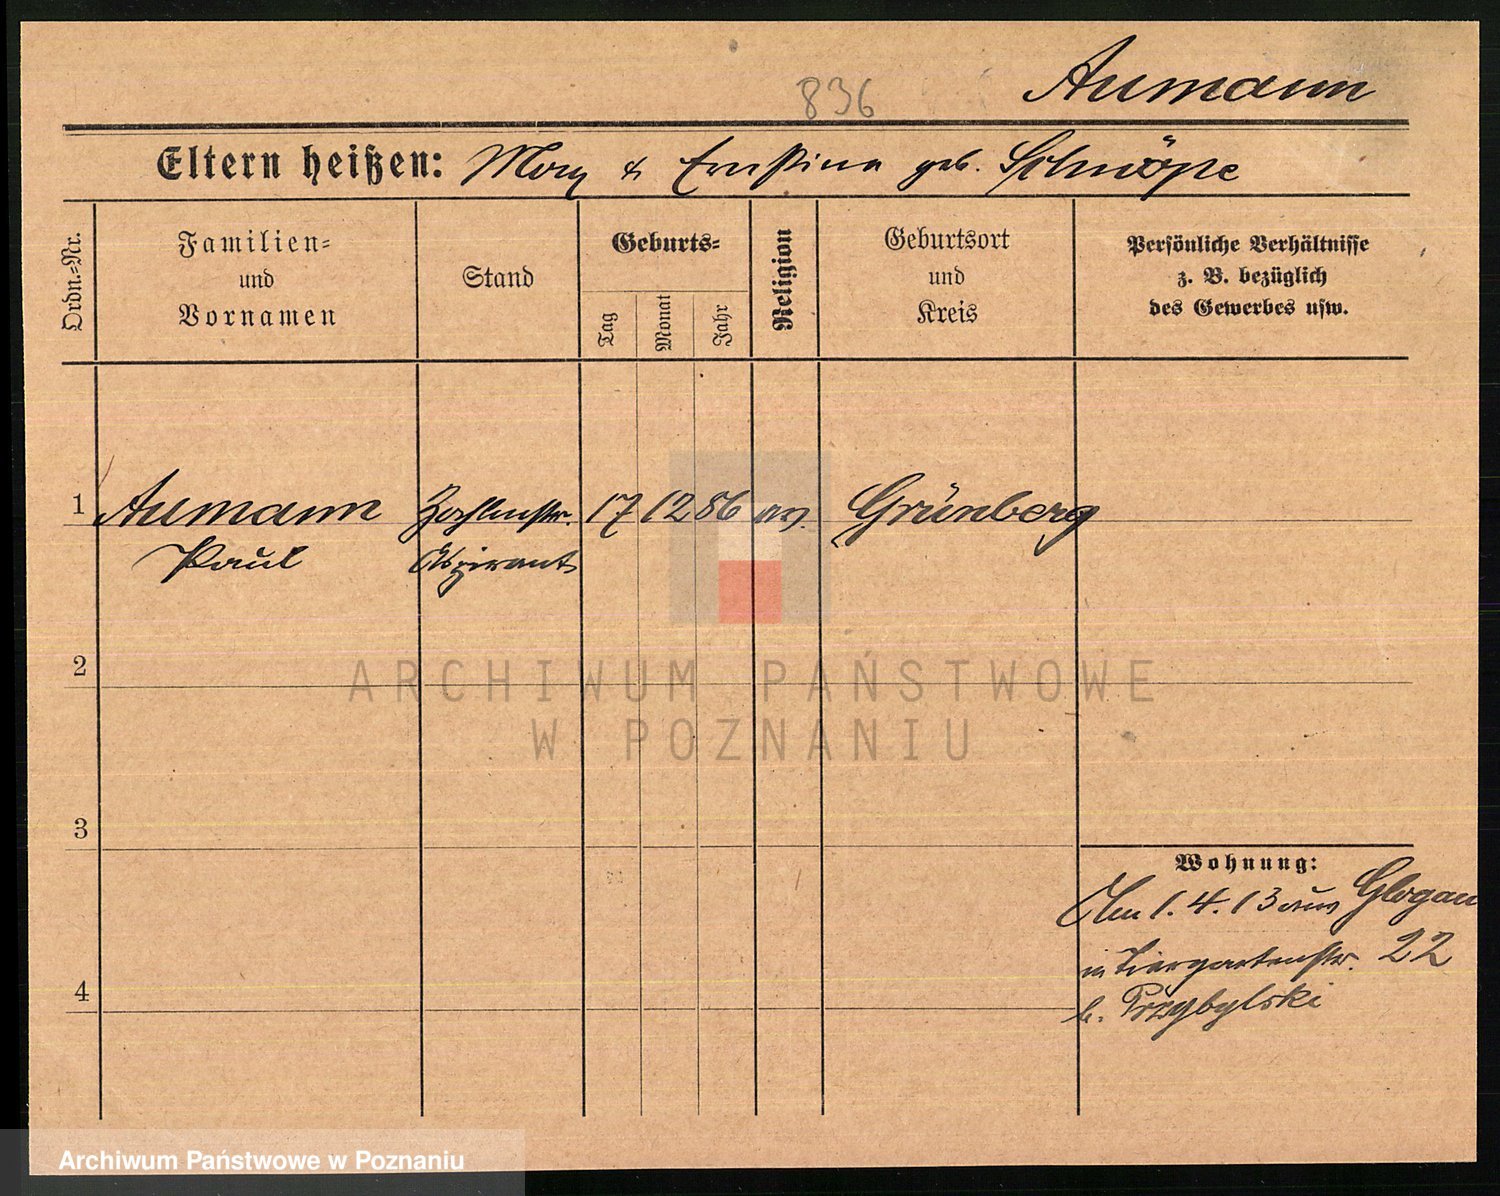 836
Aumann
Eltern heißen: Max & Ernstine geb. Schnöpe
Ordn.=Nr.
Familien=
und
Vornamen
Stand
Geburts=
Tag
Monat
Jahr
Religion
Geburtsort
und
Kreis
Persönliche Verhältnisse
z. B. bezüglich
des Gewerbes usw.
1 Aumann Zahlmstr. 17 12 86 ev. Grünberg
Paul Aspirant
2
ARCHIWUM PAŃSTWOWE
W POZNANIU
3
Wohnung:
Am 1.4.13 aus Glogau
in Tiergartenstr. 22
4
b. Przybylski
Archiwum Państwowe w Poznaniu